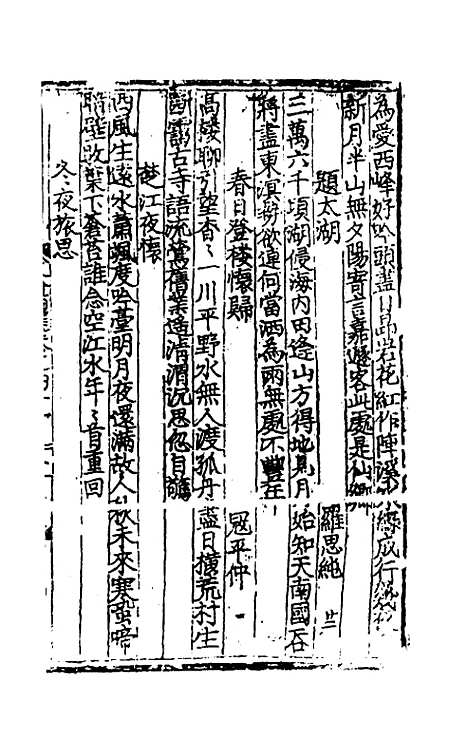 為愛西峰好吟頭盡日昂岩花紅作陣溪水綠成行幾
新月半山無夕陽寄言嘉遯客此處是仙鄉
題太湖 羅思純
三萬六千頃湖侵海內田逢山方得地見月始知天南國吞
將盡東溟勢欲連何當洒為雨無處不豐年
春日登樓懷歸 寇平仲
高樓聊引望杳〻一川平野水無人渡孤舟盡日橫荒村生
斷靄古寺語流鶯舊業遙清渭沉思忽自驚
楚江夜懷
西風生遠水蕭颯度吟臺明月夜還滿故人秋未來寒蛩啼
暗壁敗葉下蒼苔誰念空江水年〻首重回
冬夜旅思